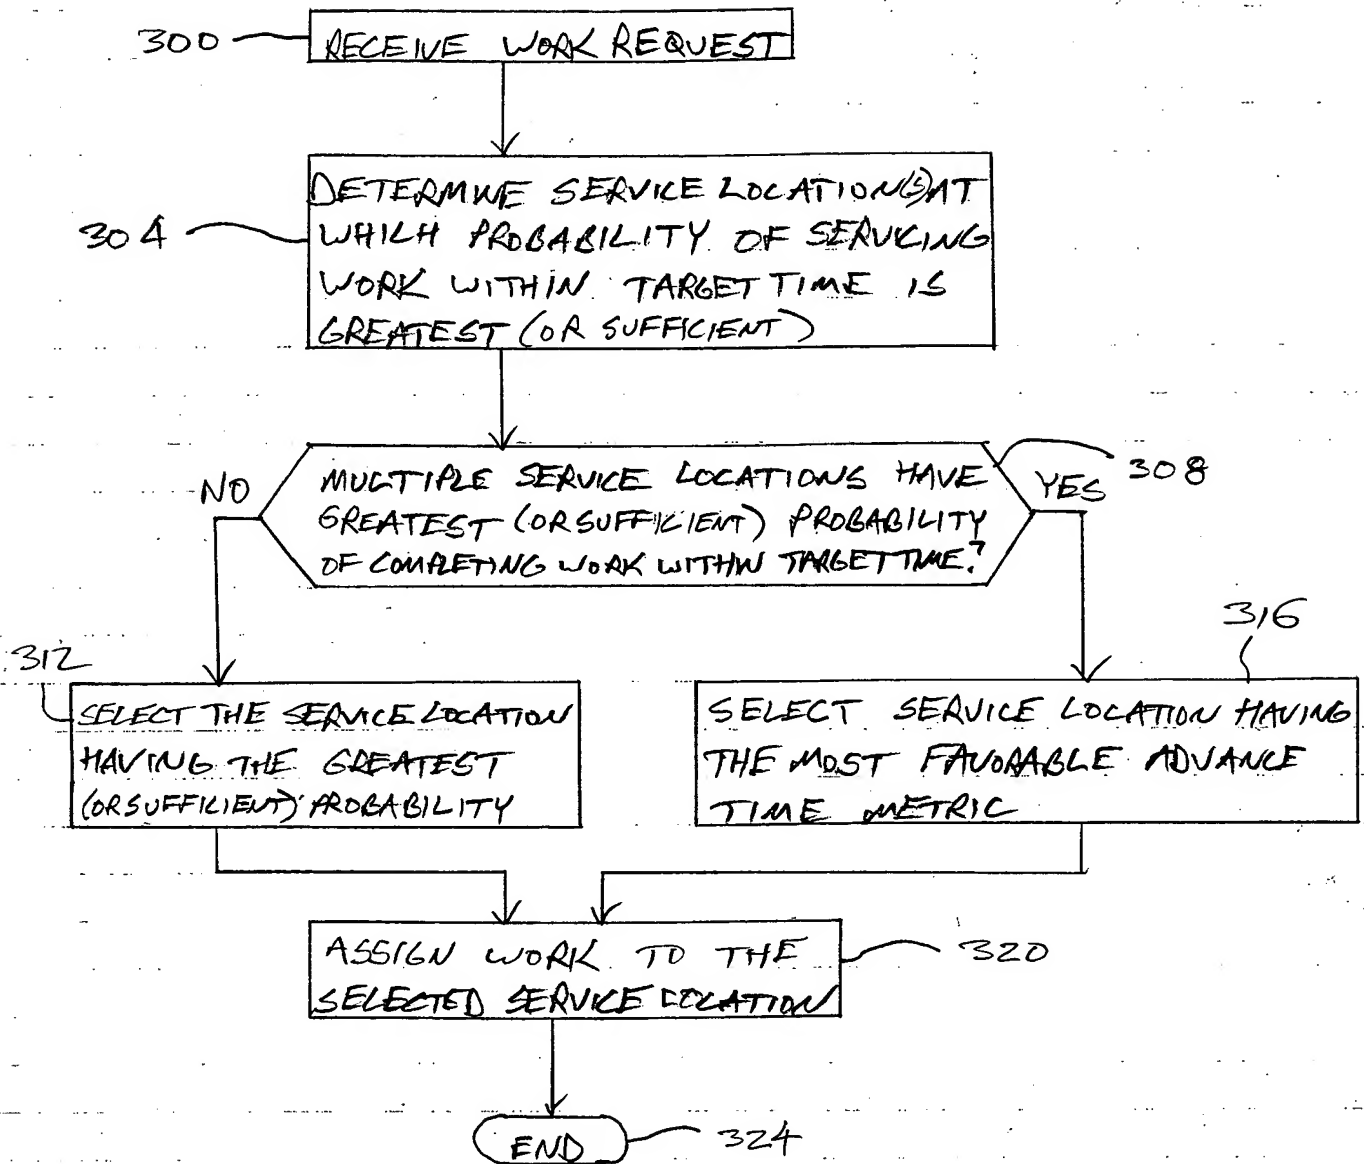 300
RECEIVE WORK REQUEST
DETERMINE SERVICE LOCATION(S) AT
304
WHICH PROBABILITY OF SERVICING
WORK WITHIN TARGET TIME IS
GREATEST (OR SUFFICIENT)
NO
MULTIPLE SERVICE LOCATIONS HAVE
GREATEST (OR SUFFICIENT) PROBABILITY
OF COMPLETING WORK WITHIN TARGET TIME?
YES
308
312
SELECT THE SERVICE LOCATION
HAVING THE GREATEST
(OR SUFFICIENT) PROBABILITY
316
SELECT SERVICE LOCATION HAVING
THE MOST FAVORABLE ADVANCE
TIME METRIC
ASSIGN WORK TO THE
SELECTED SERVICE LOCATION
320
END
324